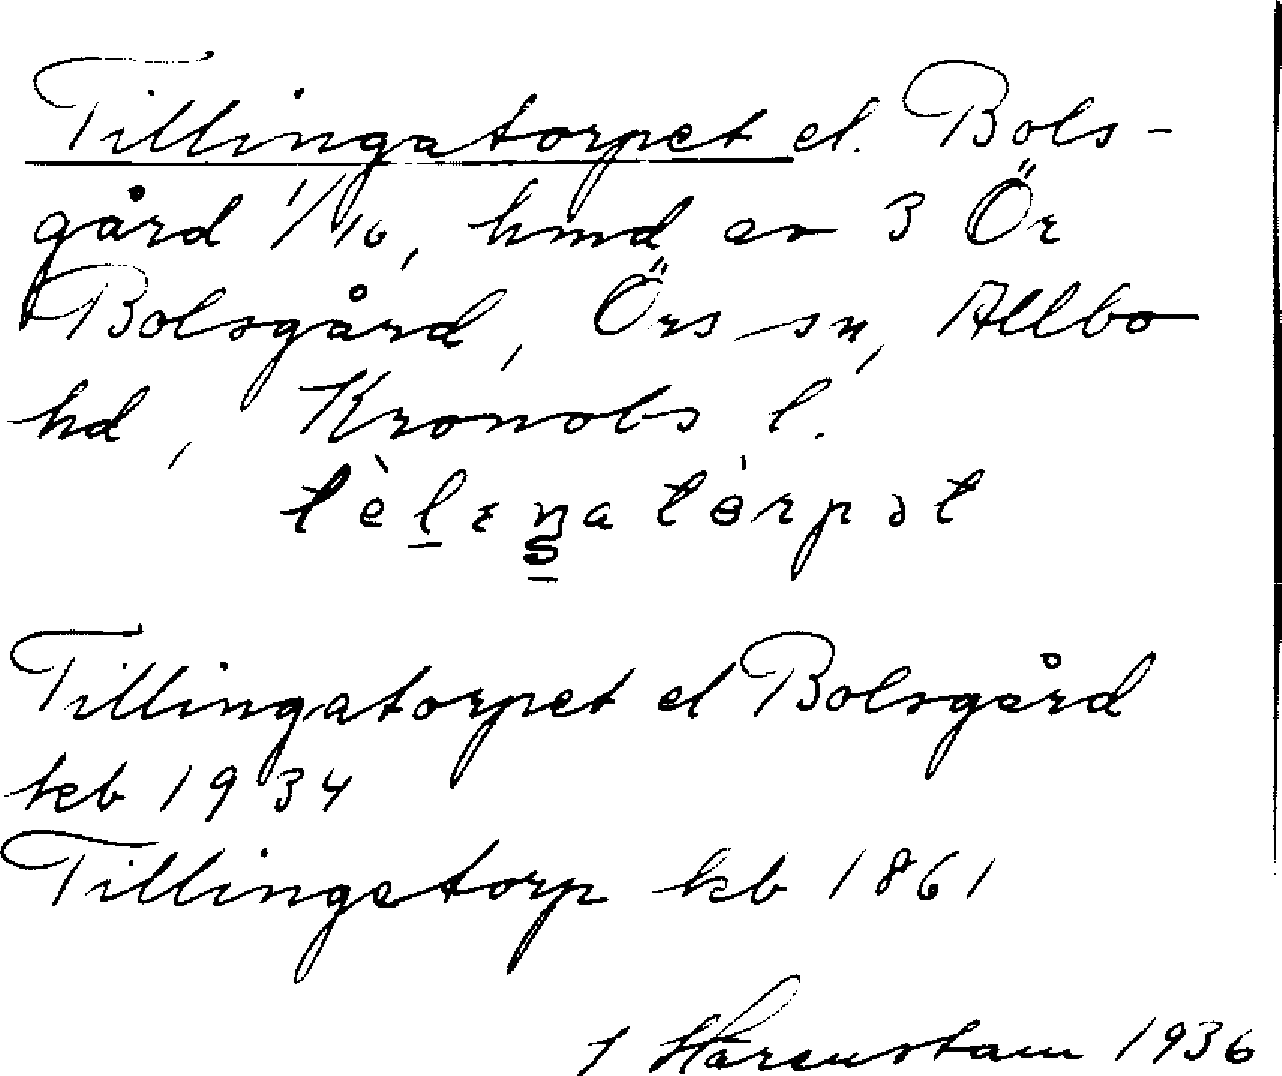 Tillingatorpet el. Bols-
gård 1/16, hmd av 3 Ör
Bolsgård, Örs sn, Allbo
hd, Kronobs l.
tèlɛŋatòrpət
Tillingatorpet el Bolsgård
kb 1934
Tillingatorp kb 1861
1936